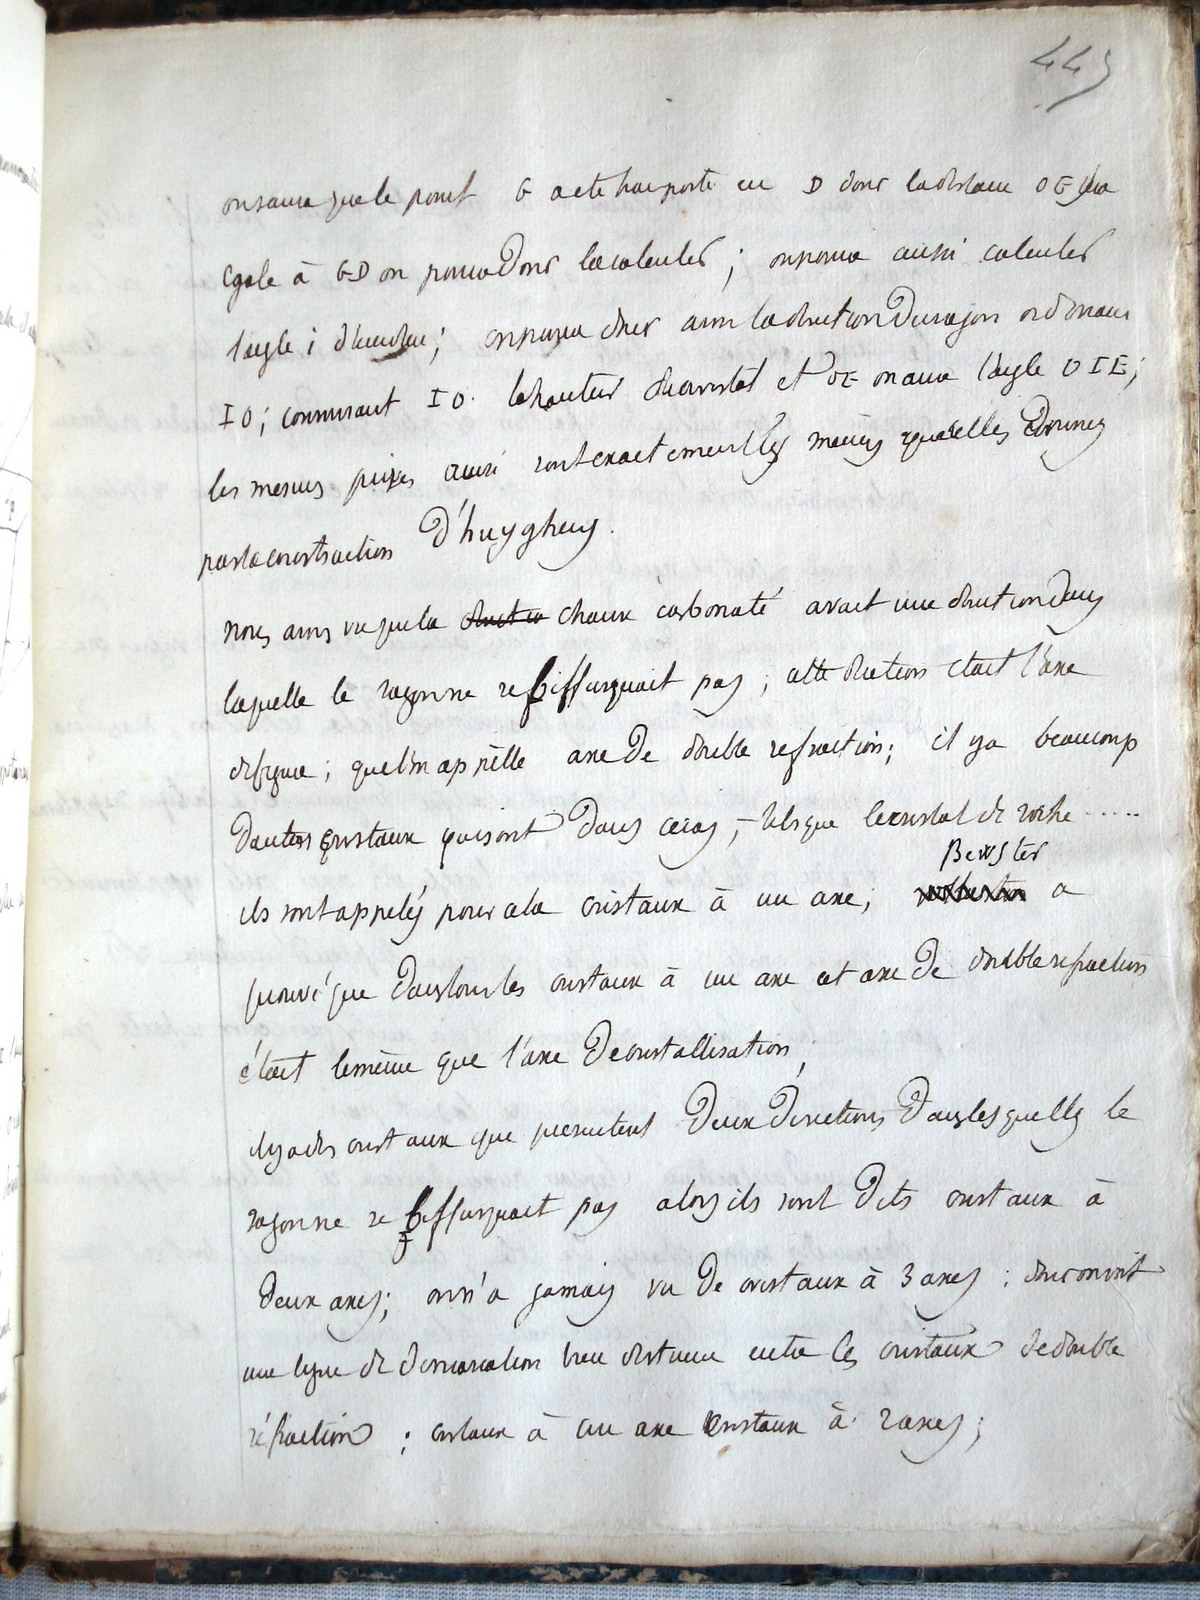 445
on saura que le point G a été transporté en D donc la distance OE sera
égale à GD on pourra donc la calculer ; on pourra aussi calculer
l'angle i d'incidence ; on pourra donc avoir la direction du rayon ordinaire
IO ; connaissant IO la hauteur du cristal et OE on aura l'angle OIE ;
les mesures prises ainsi sont exactement les mêmes que celles données
par la construction d'huyghens.
nous avons vu que la chaux carbonaté avait une direction dans
laquelle le rayon ne se biffurquait pas ; cette direction était l'axe
de figure ; que l'on appèlle axe de double refraction ; il y a beaucoup
d'autres cristaux qui sont dans ce cas ; tels que le cristal de roche .....
Bewster
ils sont appelés pour cela cristaux à un axe ; a
prouvé que dans tous les cristaux à un axe cet axe de double refraction
était le même que l'axe de cristallisation ;
il y a des cristaux que presentent deux directions dans lesquelles le
rayon ne se biffurquait pas alors ils sont dits cristaux à
deux axes ; on n'a jamais vu de cristaux à 3 axes ;
une ligne de demarcation bien distincte entre les cristaux de double
réfraction ; cristaux à un axe cristaux à 2 axes ;